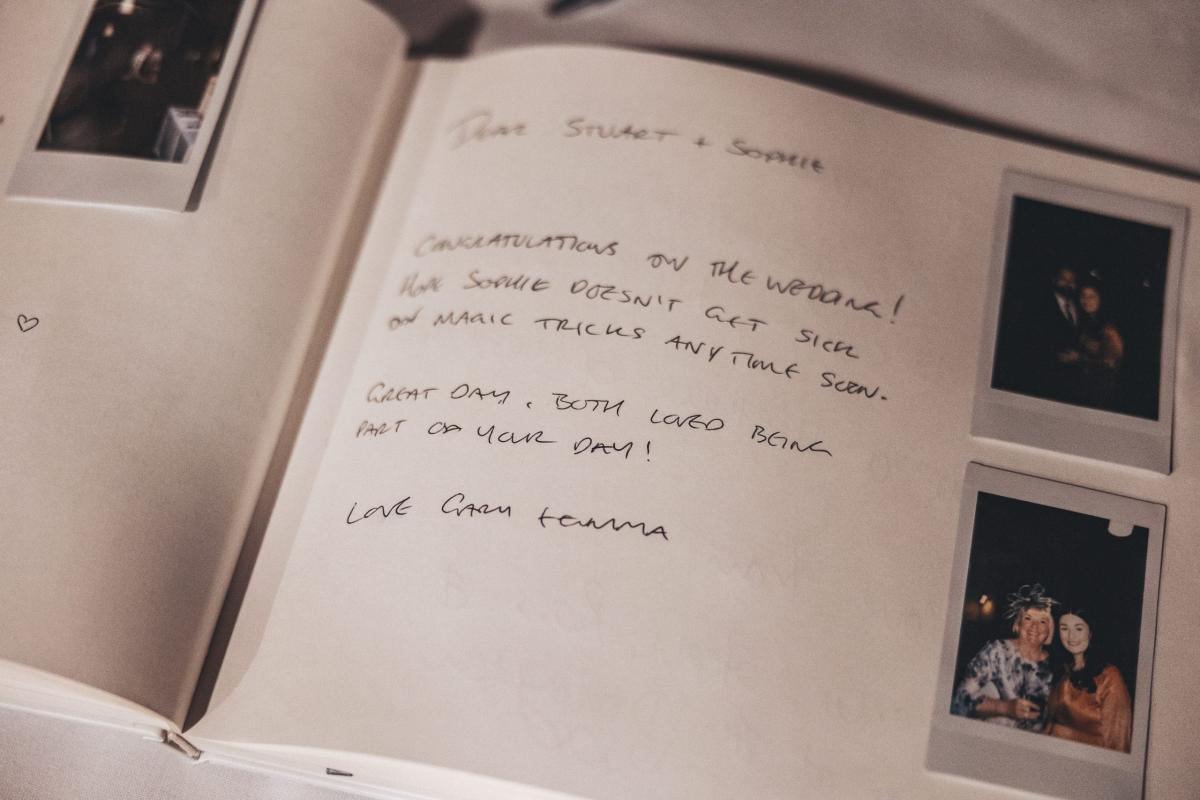 DEAR STUART + SOPHIE
CONGRATULATIONS ON THE WEDDING!
HOPE SOPHIE DOESN'T GET SICK
ON MAGIC TRICKS ANYTIME SOON.
GREAT DAY, BOTH LOVED BEING
PART OF YOUR DAY!
LOVE GARY + EMMA